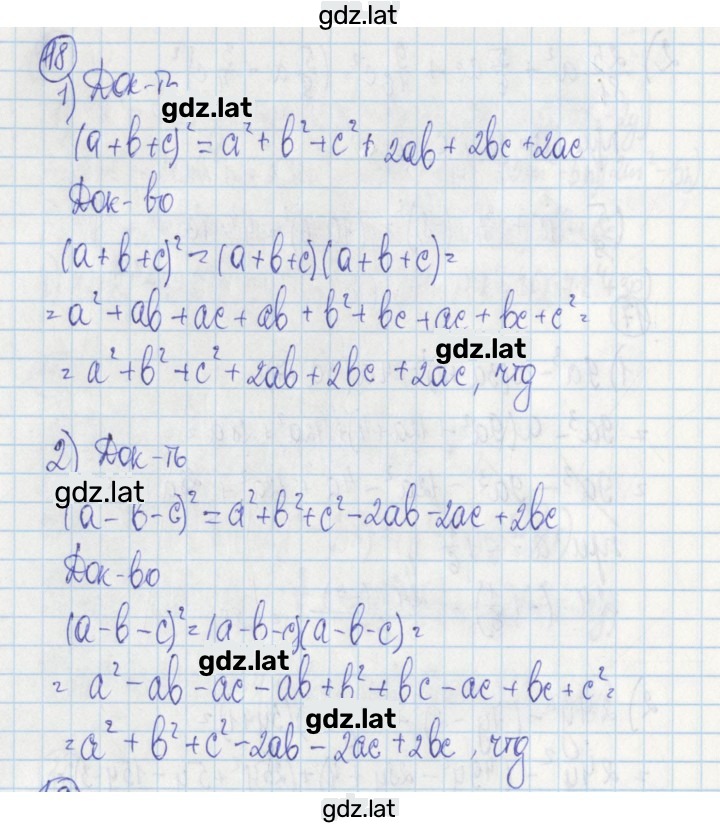 gdz.lat
18
1) Док-ть
gdz.lat
(a+b+c)² = a² + b² + c² + 2ab + 2bc + 2ac
Док-во
(a+b+c)² = (a+b+c)(a+b+c) =
= a² + ab + ac + ab + b² + bc + ac + bc + c² =
gdz.lat
= a² + b² + c² + 2ab + 2bc + 2ac, чтд
2) Док-ть
gdz.lat
(a-b-c)² = a² + b² + c² - 2ab - 2ac + 2bc
Док-во
(a-b-c)² = (a-b-c)(a-b-c) =
gdz.lat
= a² - ab - ac - ab + b² + bc - ac + bc + c² =
gdz.lat
= a² + b² + c² - 2ab - 2ac + 2bc, чтд
gdz.lat